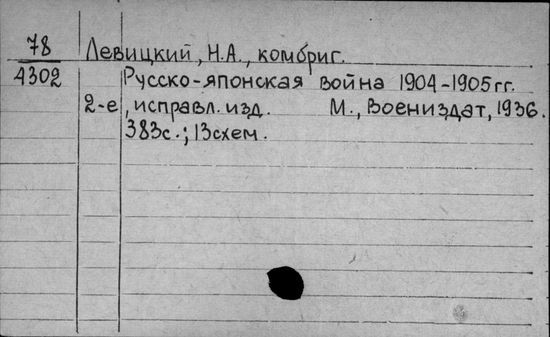 78 Левицкий, Н.А., комбриг.
4302 Русско-японская война 1904-1905гг.
2-е, исправл. изд. М., Воениздат, 1936.
383с.; 13схем.